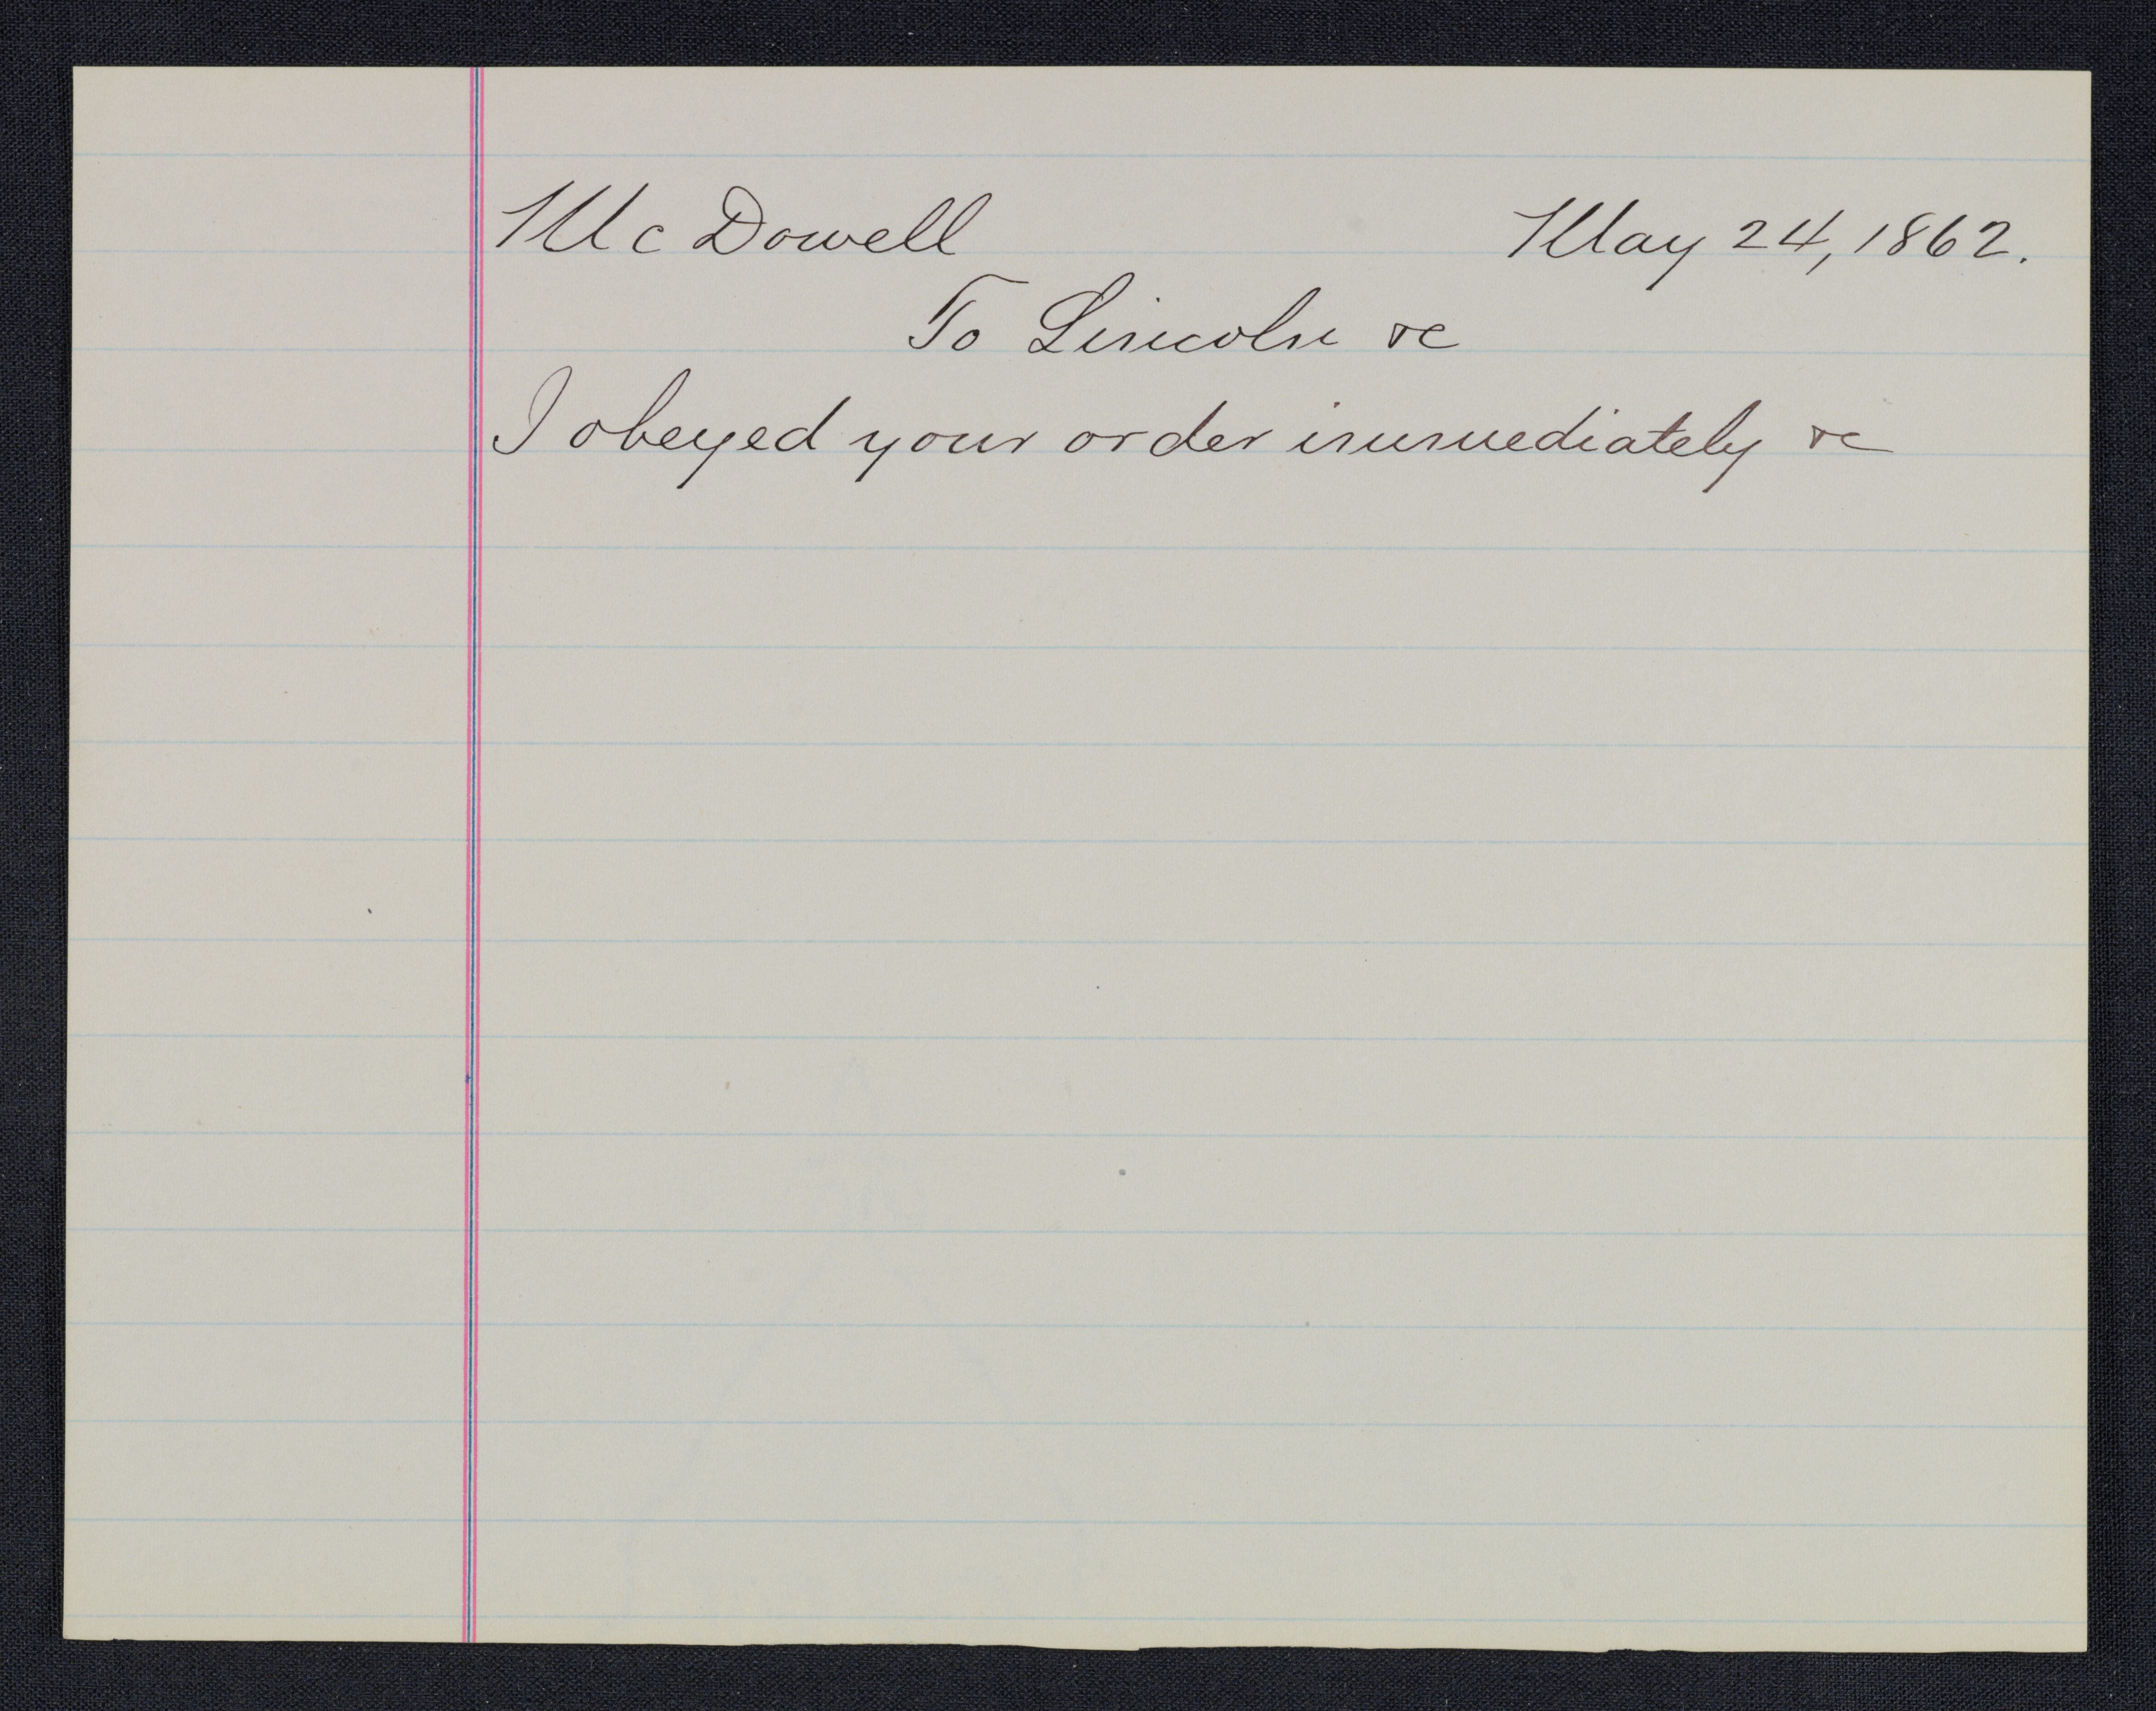 McDowell May 24, 1862.
To Lincoln &c
I obeyed your order immediately &c